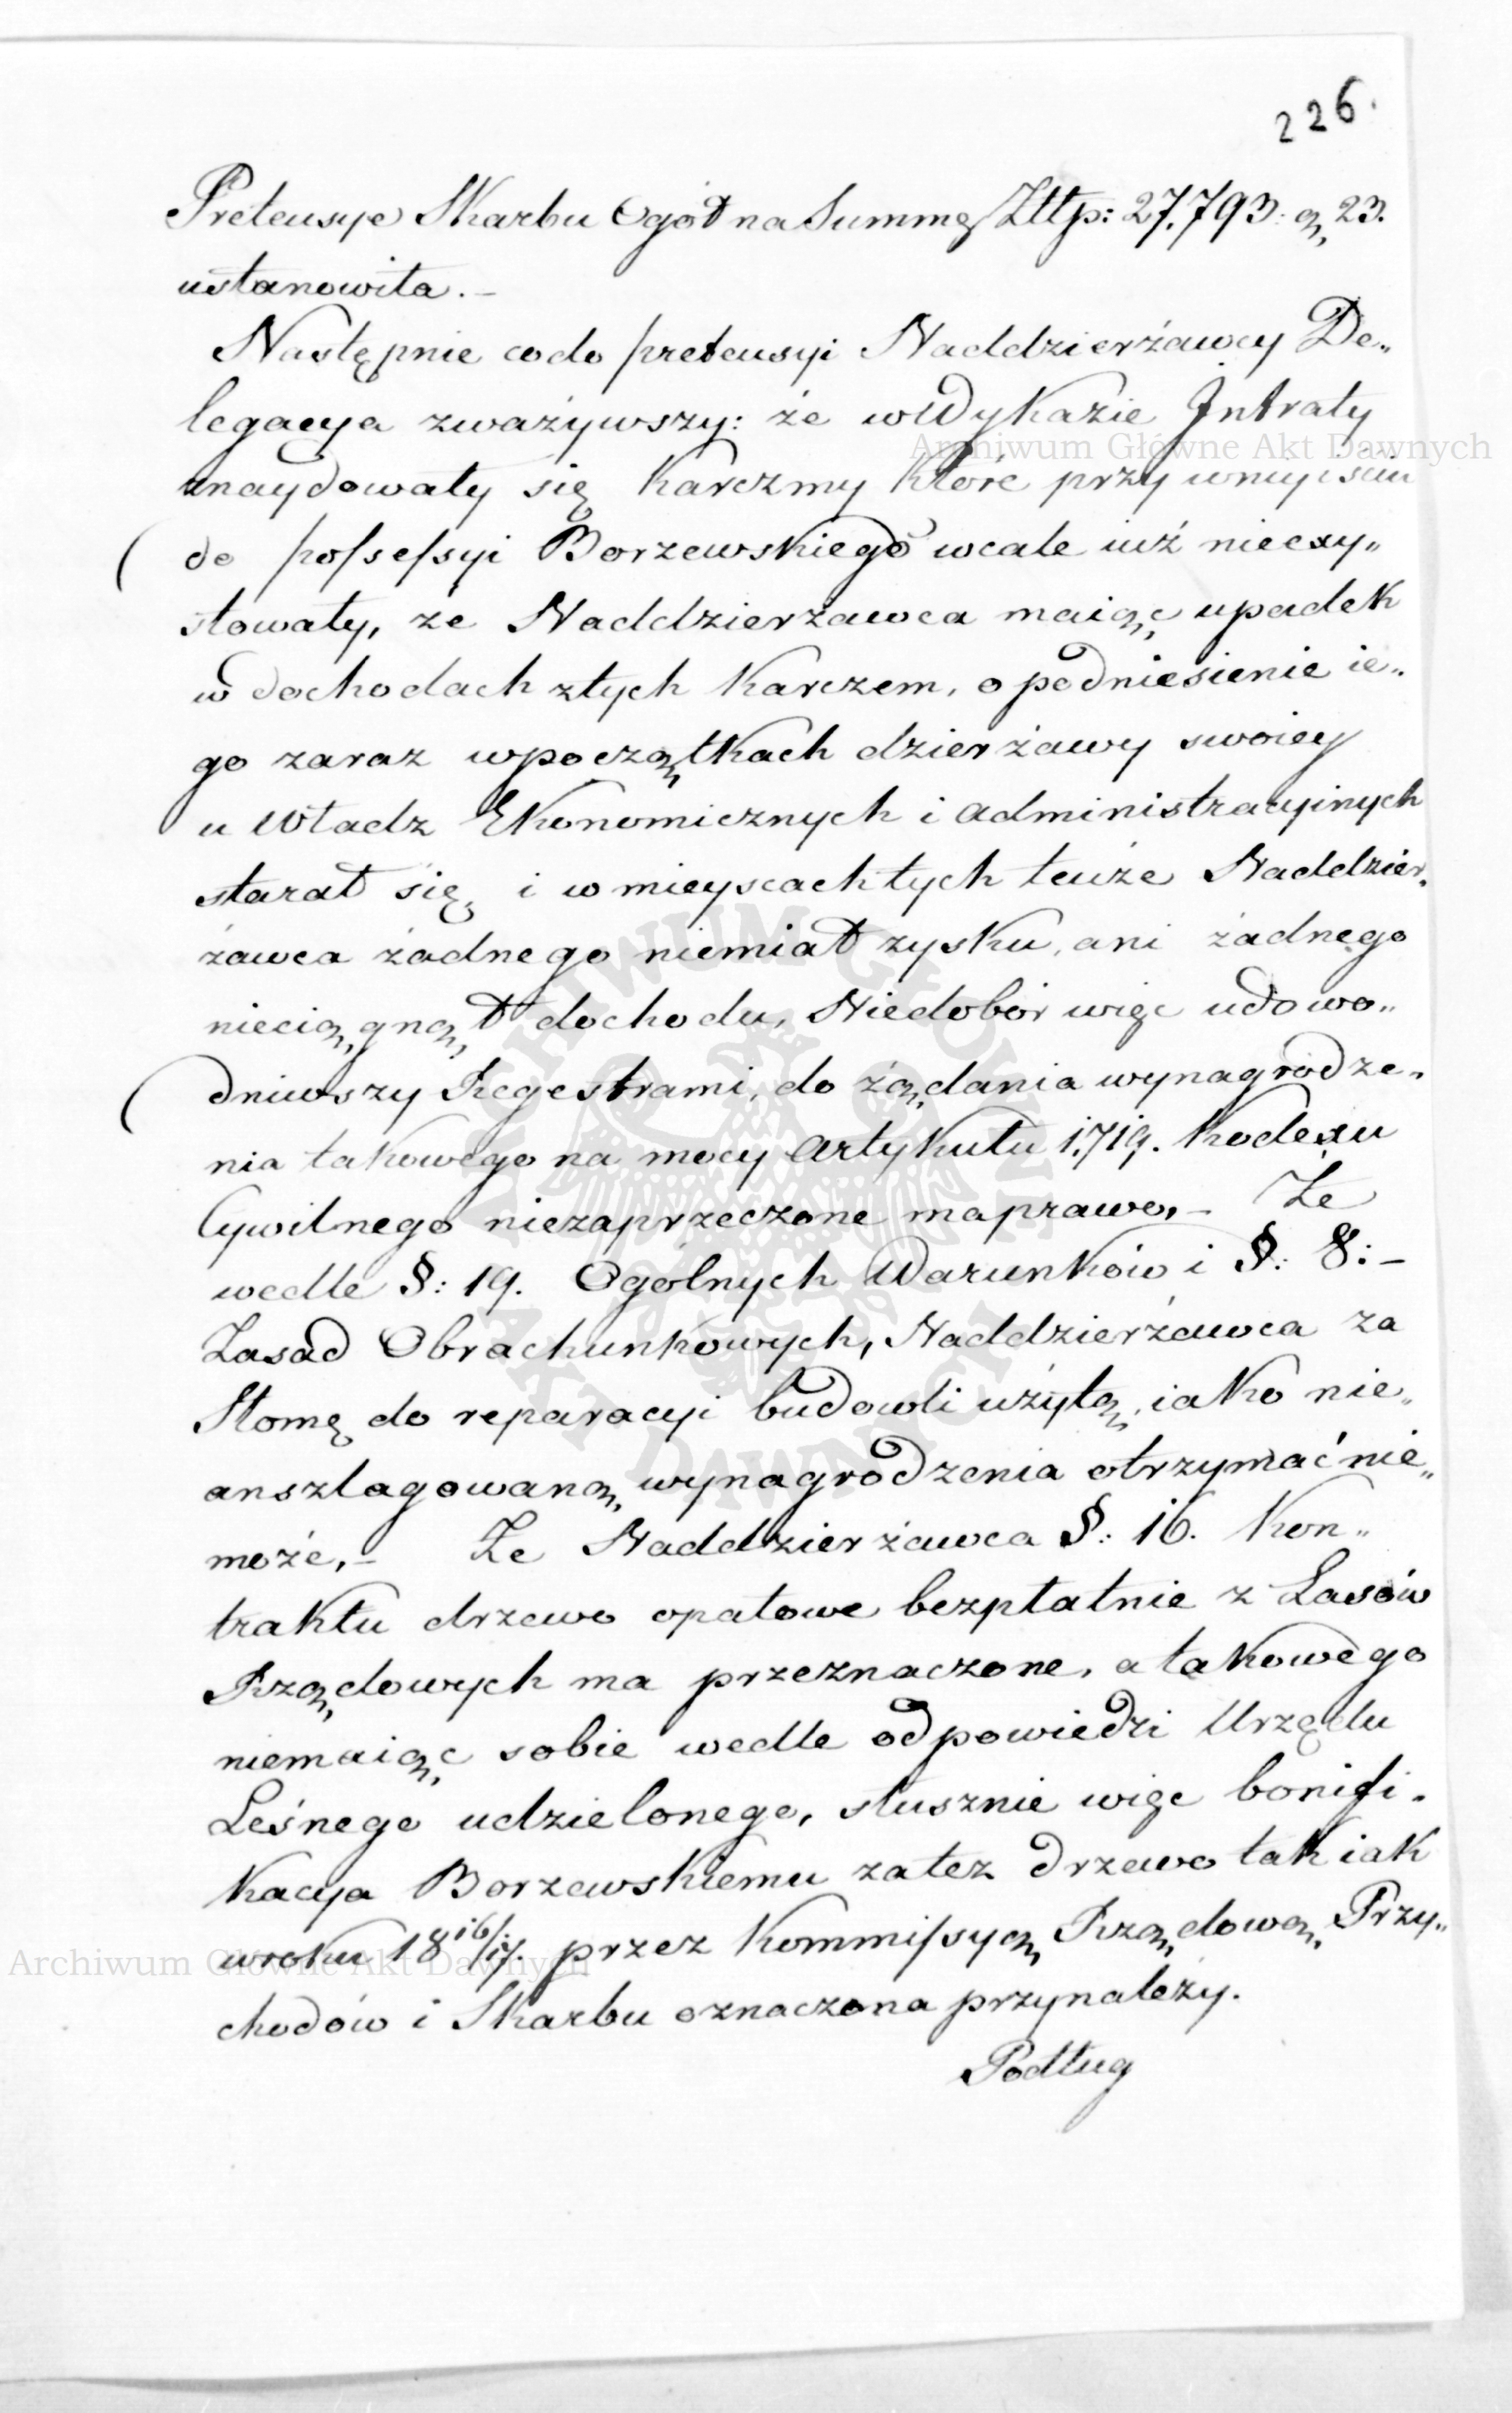 226.
Pretensye Skarbu Ogół na Summę Złtp: 27.793. g. 23.
ustanowiła. –
Następnie co do pretensyi Naddzierżawcy De„
legacya zważywszy: że w Wykazie Intraty
Archiwum Główne Akt Dawnych
znaydowały się Karczmy które przy wnuyściu
do possessyi Borzewskiego wcale iuż nieexy„
stowały, że Naddzierżawca maiąc upadek
w dochodach z tych Karczem, o podniesienie ie„
go zaraz w początkach dzierżawy swoiey
u Władz Ekonomicznych i administracyinych
starał się, i w mieyscach tych tenże Naddzier„
żawca żadnego niemiał zysku, ani żadnego
nieciągnął dochodu, Niedobór więc udowo„
dniwszy Regestrami, do żądania wynagrodze„
nia takowego na mocy artykułu 1.719. Kodexu
Cywilnego niezaprzeczone ma prawo, – Że
wedle §: 19. Ogólnych Warunków i §: 8: –
Zasad Obrachunkowych, Naddzierżawca za
Słomę do reparacyi budowli użytą, iako nie„
anszlagowaną, wynagrodzenia otrzymać nie„
może, – Że Naddzierżawca §: 16. Kon„
traktu drzewo opałowe bezpłatnie z Lasów
Rządowych ma przeznaczone, a takowego
niemaiąc sobie wedle odpowiedzi Urzędu
Leśnego udzielonego, słusznie więc bonifi„
kacya Borzewskiemu za też drzewo tak iak
w roku 18 16/17. przez Kommissyą Rządową Przy„
Archiwum Główne Akt Dawnych
chodów i Skarbu oznaczona przynależy.
Podług
ARCHIWUM GŁÓWNE
AKT DAWNYCH